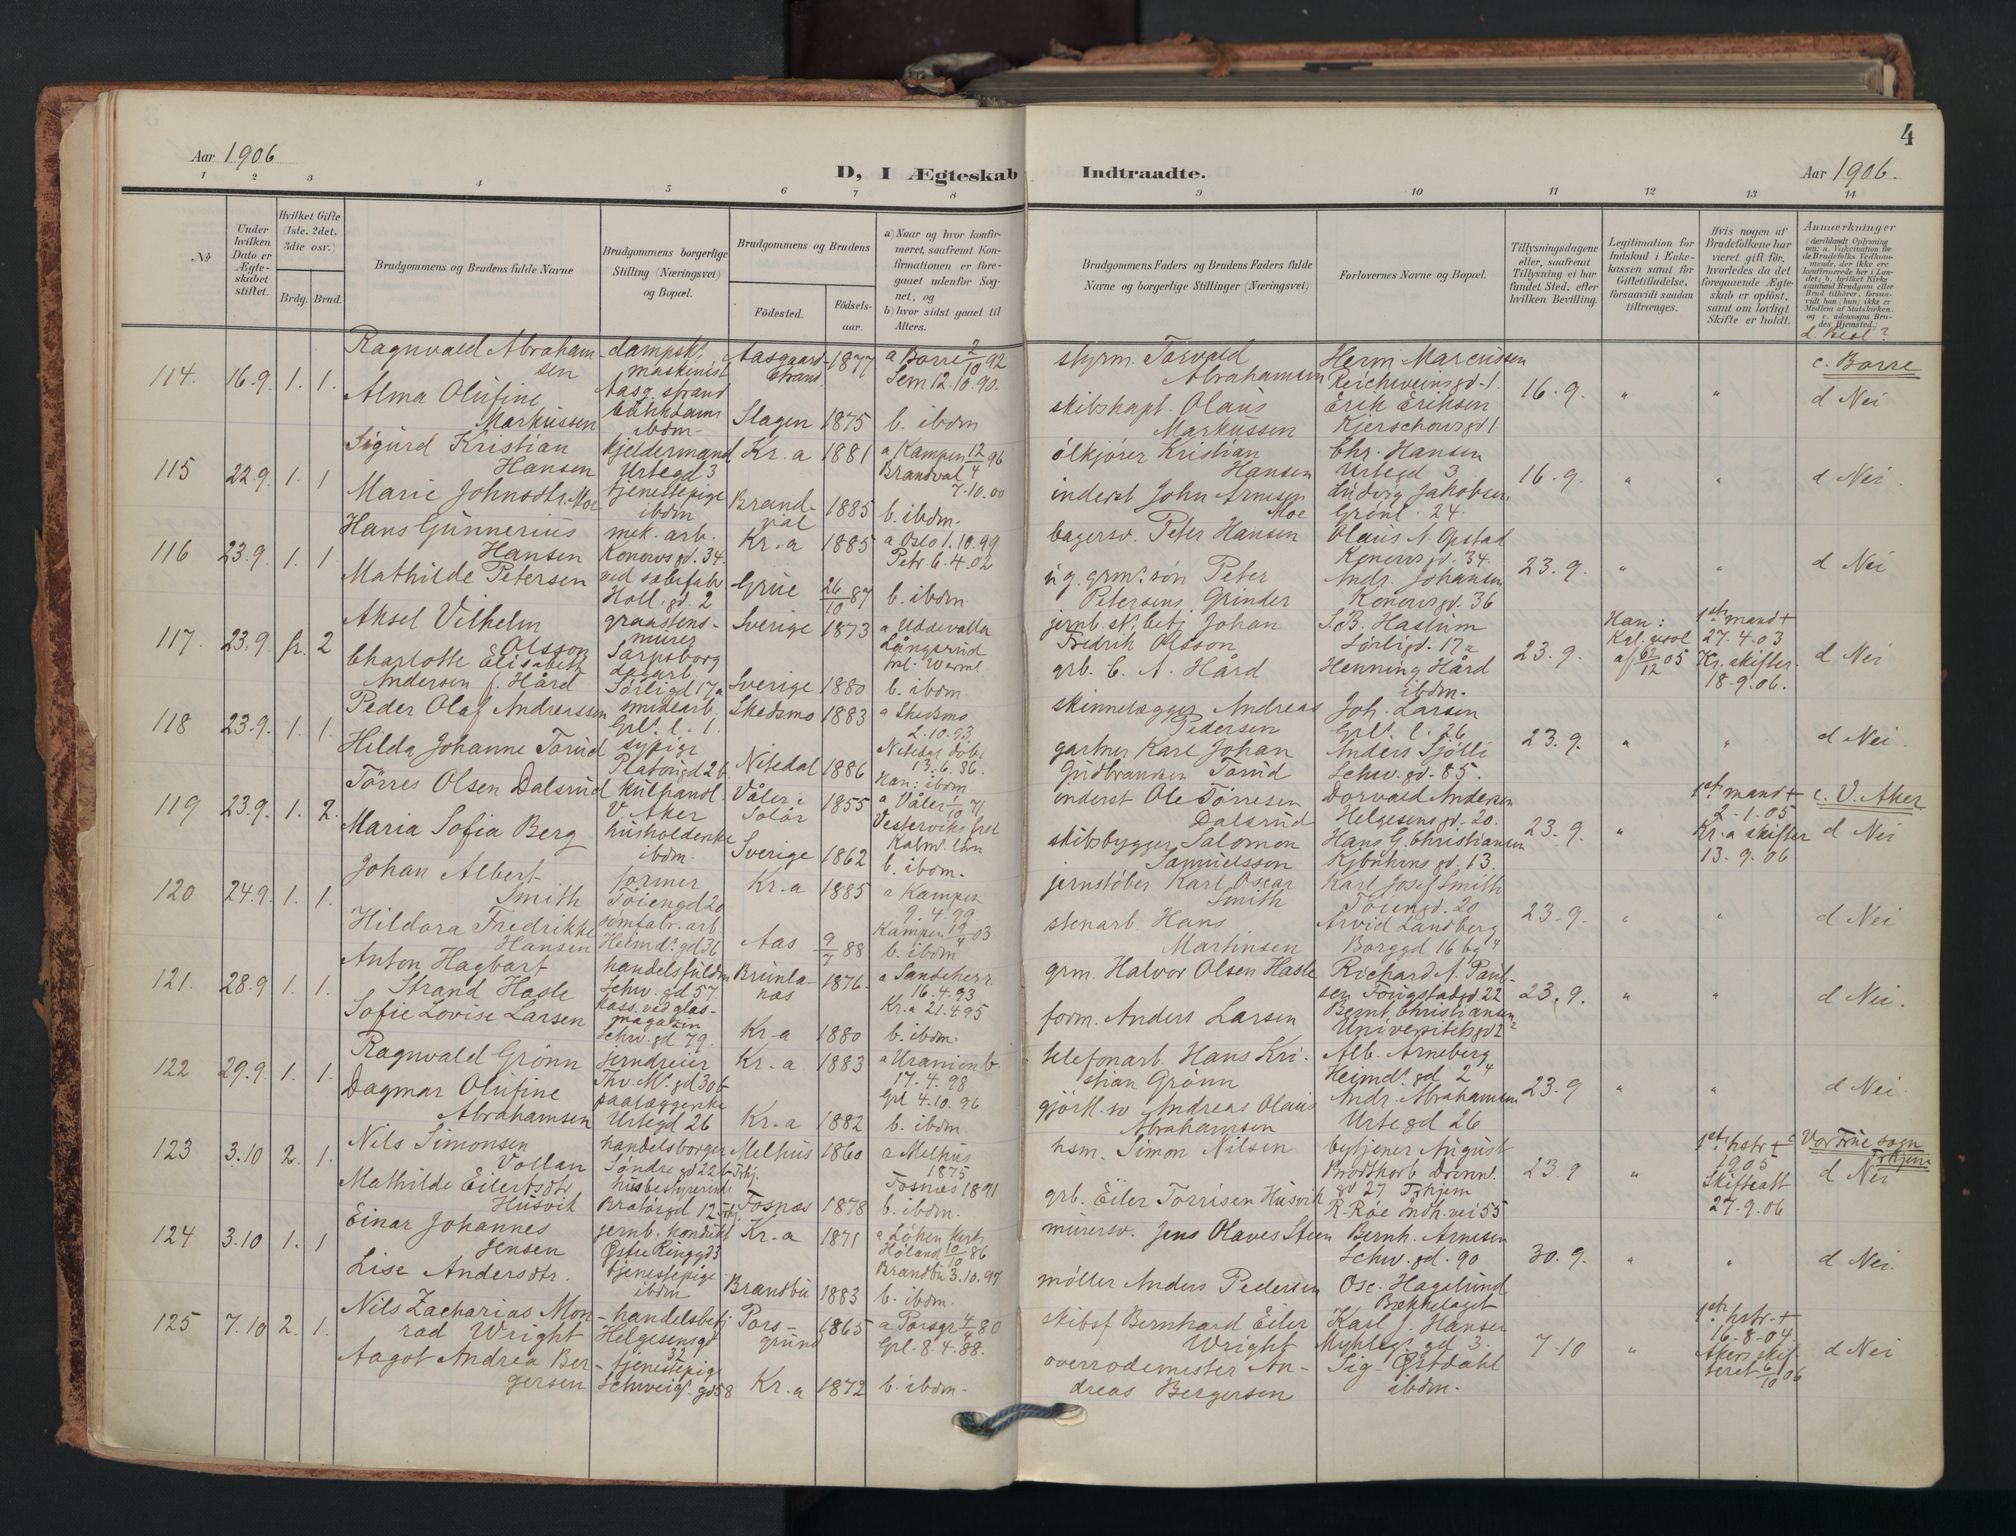 4
Aar 1906
D, I Ægteskab Indtraadte.
Aar 1906.
1 2 3 4 5 6 7 8 9 10 11 12 13 14
No
Under hvilken Dato er Ægteskabet stiftet.
Hvilket Gifte (1ste, 2det. 3die osv.)
Brdg. Brud.
Brudgommens og Brudens fulde Navne
Brudgommens borgerlige Stilling (Næringsvei) og Bopæl.
Brudgommens og Brudens
Födested.
Födselsaar.
a) Naar og hvor konfirmeret, saafremt Konfirmationen er foregaaet udenfor Sognet, og
b) hvor sidst gaaet til Alters.
Brudgommens Faders og Brudens Faders fulde Navne og borgerlige Stillinger (Næringsvei)
Forlovernes Navne og Bopæl.
Tillysningsdagene eller, saafremt Tillysning ei har fundet Sted, efter hvilken Bevilling.
Legitimation for Indskud i Enkekassen samt for Giftetilladelse, forsaavidt saadan tiltrænges.
Hvis nogen af Brudefolkene har været gift för, hvorledes da det foregaaende Ægteskab er oplöst, samt om lovligt Skifte er holdt.
Anmærkninger
(deriblandt Oplysning om: a. Vakcination for de Brudefolks Vedkommende, der ikke ere konfirmerede her i Landet; b. hvilket Kirkesamfund Brudgom eller Brud tilhörer, forsaavidt han (hun) ikke er Medlem af Statskirken, og c. udensogns Brudes Hjemsted.
d. Besl?
114. 16.9. 1. 1.
Ragnvald Abrahamsen
dampsk. maskinist Aasg. strand
Aasgaardstrand 1877
a Borre 2/10 92
Sem 12.10.90.
styrm. Torvald Abrahamsen
Herm. Marcussen
Reichweinsgd. 1.
16.9. " "
c. Borre
d Nei
Alma Olufine Markussen
ibdm
Slagen 1875 b. ibdm
skibskapt. Olaus Markussen
Erik Eriksen
Kjerschowsgd 1
115 22.9. 1. 1
Sigurd Kristian Hansen
kjeldermand Urtegd 3
Kr.a 1881
a Kampen 12/4 96
Brandval 7.10.00
ölkjörer Kristian Hansen
Chr. Hansen
Urtegd 3
16.9. " "
d Nei.
Marie Johnsdtr. Moe
tjenestepige ibdm
Brandval 1885 b. ibdm.
inderst John Arnesen Moe
Ludvig Jakobsen
Grönl. 24.
116 23.9. 1. 1
Hans Gunnerius Hansen
mek. arb. Konowsgd. 34.
Kr.a 1885
a Oslo 1.10.99
Petr. 6.4.02
bagersv. Peter Hansen
Olaus A. Opstad
Konowsgd. 34
23.9. " "
d Nei
Mathilde Petersen
Holl. gd. 2
Grue 26/10 87 b. ibdm.
Peter Petersens Grinder
Andr. Johansen
Konowsgd. 36
117. 23.9. fr. 2
Aksel Vilhelm Olsson
graastensmurer Sarpsborg
Sverige 1873
a Uddevalla
Långserud
jernb. st. betj. Johan Fredrik Olsson
S.B. Haslum
Sörligd. 17a
23.9.
Han:
Kgl. resol af
1ste mand +
27.4.03
Kr. skifter.
18-9.06.
d Nei
Charlotte Elisabeth Andersen f. Hård
Sörligd 17a
Sverige 1880 b. ibdm.
grb. C. A. Hård
Henning Hård
ibdm.
118 23.9. 1. 1.
Peder Olaf Andreassen
smedearb. Grl. l. 1.
Skedsmo 1883
a Skedsmo
2.10.93
skinnelægger Andreas Pedersen
Joh. Larsen
Grl. l. 26
23.9. " "
d Nei.
Hilda Johanne Torud
sypige Platougd 2b.
Nitedal 1886
Nitedal döbt
13.6.86.
Han: ibdm
gartner Karl Johan Gudbransen Torud
Anders Sjölli
Schw. gd. 85.
119 23.9. 1. 2.
Törres Olsen Dalsrud
kulhandl. V. Aker
Våler i Solör 1855
a Våler 1/10 71
inderst Ole Törresen Dalsrud
Dorvald Andersen
Helgesensgd. 20.
23.9. "
1ste mand +
2-1.05
Kr.a skifter
13.9.06
c. V. Aker
d Nei
Maria Sofia Berg
husholderske ibdm.
Sverige 1862
Vesterviks fred
Kalm. län
b. ibdm.
skibsbygger Salomon Samuelsson
Hans G. Christiansen
Kjbnhvnsgd. 13.
120 24.9. 1. 1.
Johan Albert Smith
former Töiengd 20
Kr.a 1885
a Kampen
9.4.99
jernstöber Karl Oscar Smith
Karl Josef Smith
Töiengd. 20
23.9. " "
d Nei
Hildora Fredrikke Hansen
sömfabr. arb Heimdsgd 36
Aas 9/7 88
Kampen 19/4 03
b. ibdm
stenarb. Hans Martinsen
Arvid Landberg
Borggd 16
121. 28.9 1. 1.
Anton Hagbart Strand Hasle
handelsfuldm Schw. gd 57.
Brunlanæs 1876.
a Sandeherr.
16.4.93
grm. Halvor Olsen Hasle
Richard A. Paulsen Tougstadgd 22
23.9. " "
d Nei.
Sofie Lovise Larsen
kass. ved glasmagasin Schw. gd 79.
Kr.a 1880
Kr.a 21.4.95
b. ibdm.
form. Anders Larsen
Bernt Christiansen
Universitetsgd
122 29.9. 1. 1.
Ragnvald Grönn
jerndreier Thv. M. gd 30b
Kr.a 1883
a Uranienb.
17.4.98
telefonarb. Hans Kristian Grönn
Alb. Arneberg
Heimdsgd 2
23.9 " "
d Nei.
Dagmar Olufine Abrahamsen
paalæggerske Urtegd 26
Kr.a 1882
Grl 4.10.96
b. ibdm.
Andreas Olaus Abrahamsen
Andr. Abrahamsen
Urtegd 26
123 3.10 2. 1.
Nils Simonsen Vollan
handelsborger Söndre gd 22b Trhj.
Melhus 1860
a Melhus
1875
hsm. Simon Nilsen
bytjener August
23.9 "
1ste hstr +
1905
Skifteatt
27.9.06
c Vor Frue sogn
Trhjem
d Nei
Mathilde Eilertsdtr Husvik
husbestyrerinde
Fosnæs 1878
Fosnæs 1891
b. ibdm.
grb. Eiler Torrisen Husvik
124 3.10 1. 1
Einar Johannes Jensen
jernb. konduktör Östre Ringgd 3
Kr.a 1871
a Löken kirke
Höland 10/10 86
murersv. Jens Olaves Steen
Bernh. Arnesen
Schw. gd. 90
30.9. " "
d Nei.
Lise Andersdtr.
tjenestepige ibdm
Brandbu 1883
Brandbu 3.10.97
b. ibdm.
möller Anders Pedersen
Osc. Hagelund
Bækkelaget
125 7.10 2. 1.
Nils Zacharias Monrad Wright
handelsbetj Helgesensgd 32
Porsgrund 1865
a Porsgr 4/4 80
skibsf Bernhard Eiler Wright
Karl J. Hansen
gd 3.
7-10 "
1ste hstr. +
16-8-04.
Akers skifteret 6/10 06
d Nei
Aagot Andrea Bergersen
tjenestepige Schweigs. gd 58
Kr.a 1872
Grl. 8.4.88.
b. ibdm.
overrodemester Andreas Bergersen
Sig. Östdahl
ibdm.